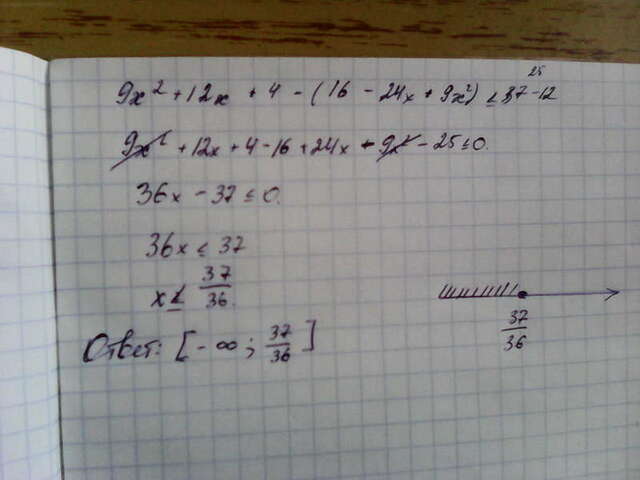 25
9x² + 12x + 4 - (16 - 24x + 9x²) ≤ 37 - 12
9x² + 12x + 4 - 16 + 24x - 9x² - 25 ≤ 0.
36x - 37 ≤ 0.
36x ≤ 37
x ≤ 37/36.
37/36
Ответ: [-∞; 37/36]